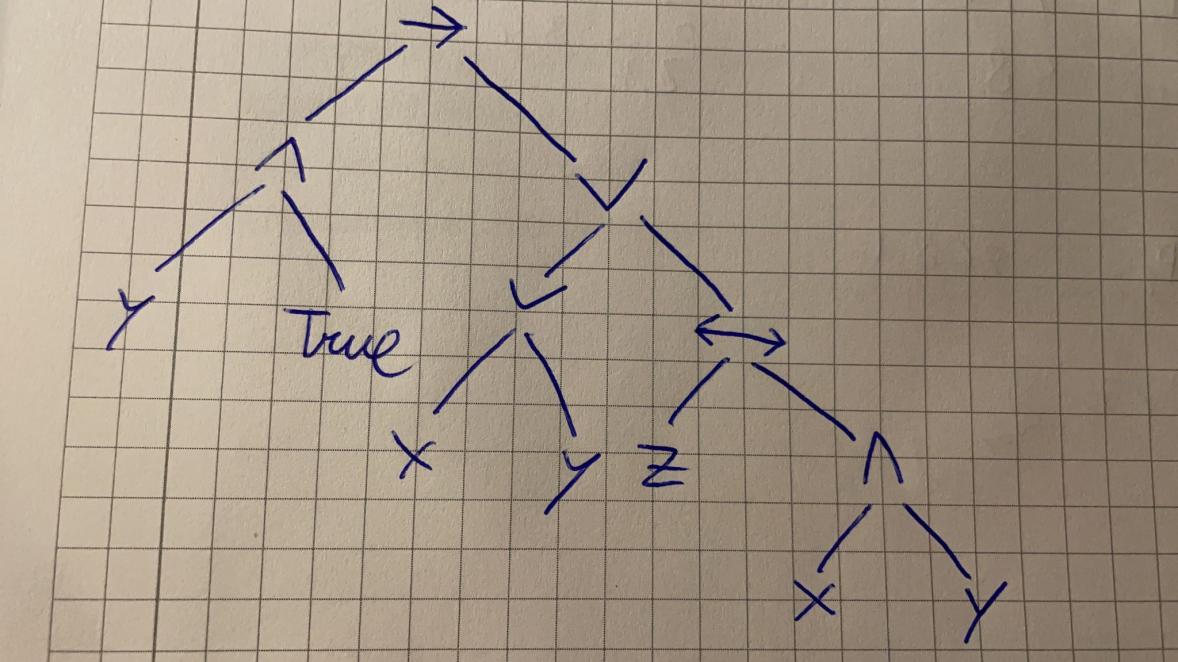 →
∧ ∨
y True ∨ ↔
x y z ∧
x y